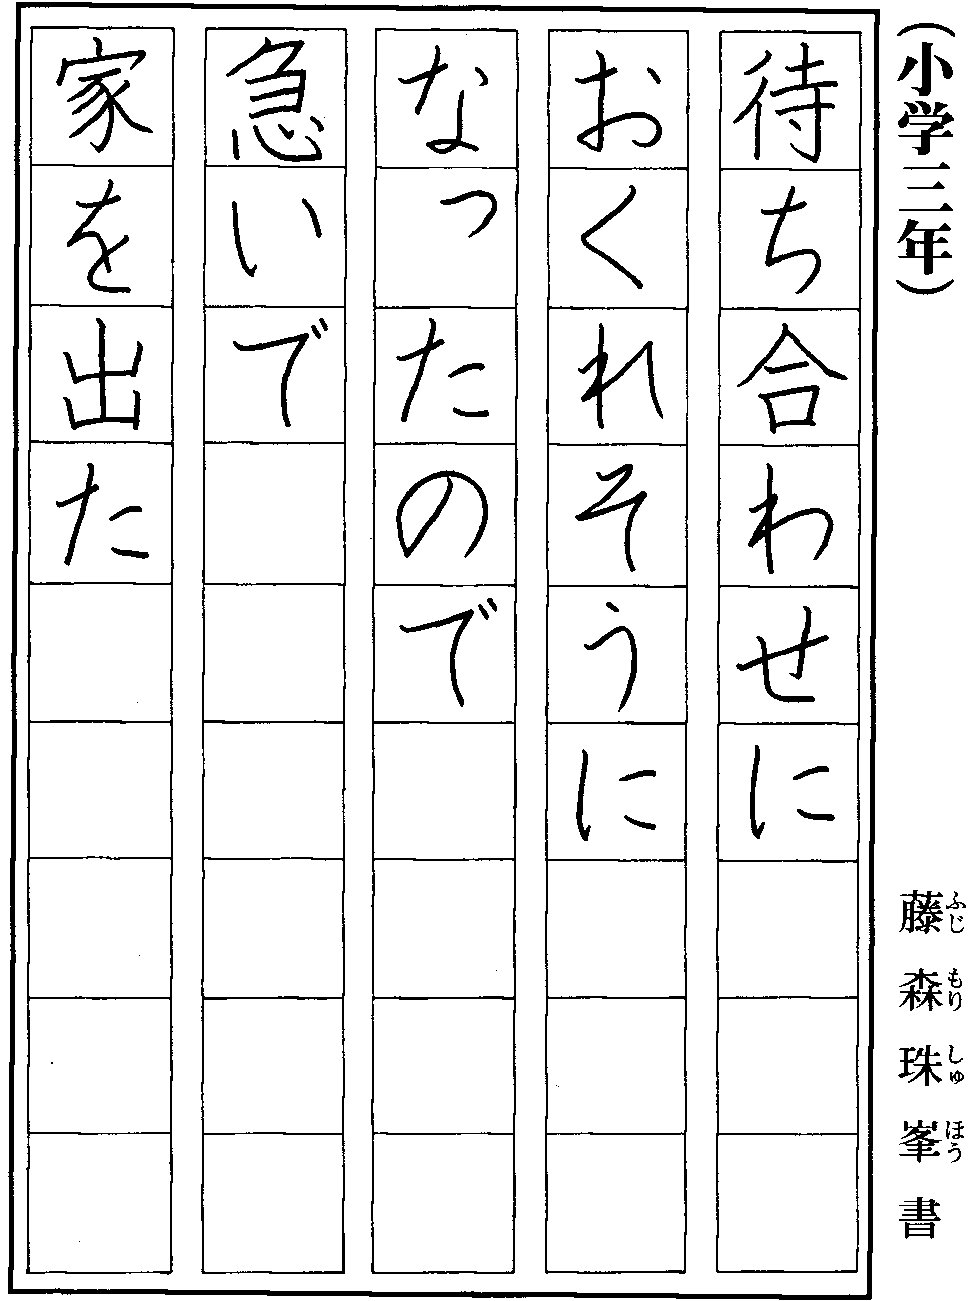 （小学三年）
藤森珠峯書
ふじもりしゅほう
待ち合わせに
おくれそうに
なったので
急いで
家を出た